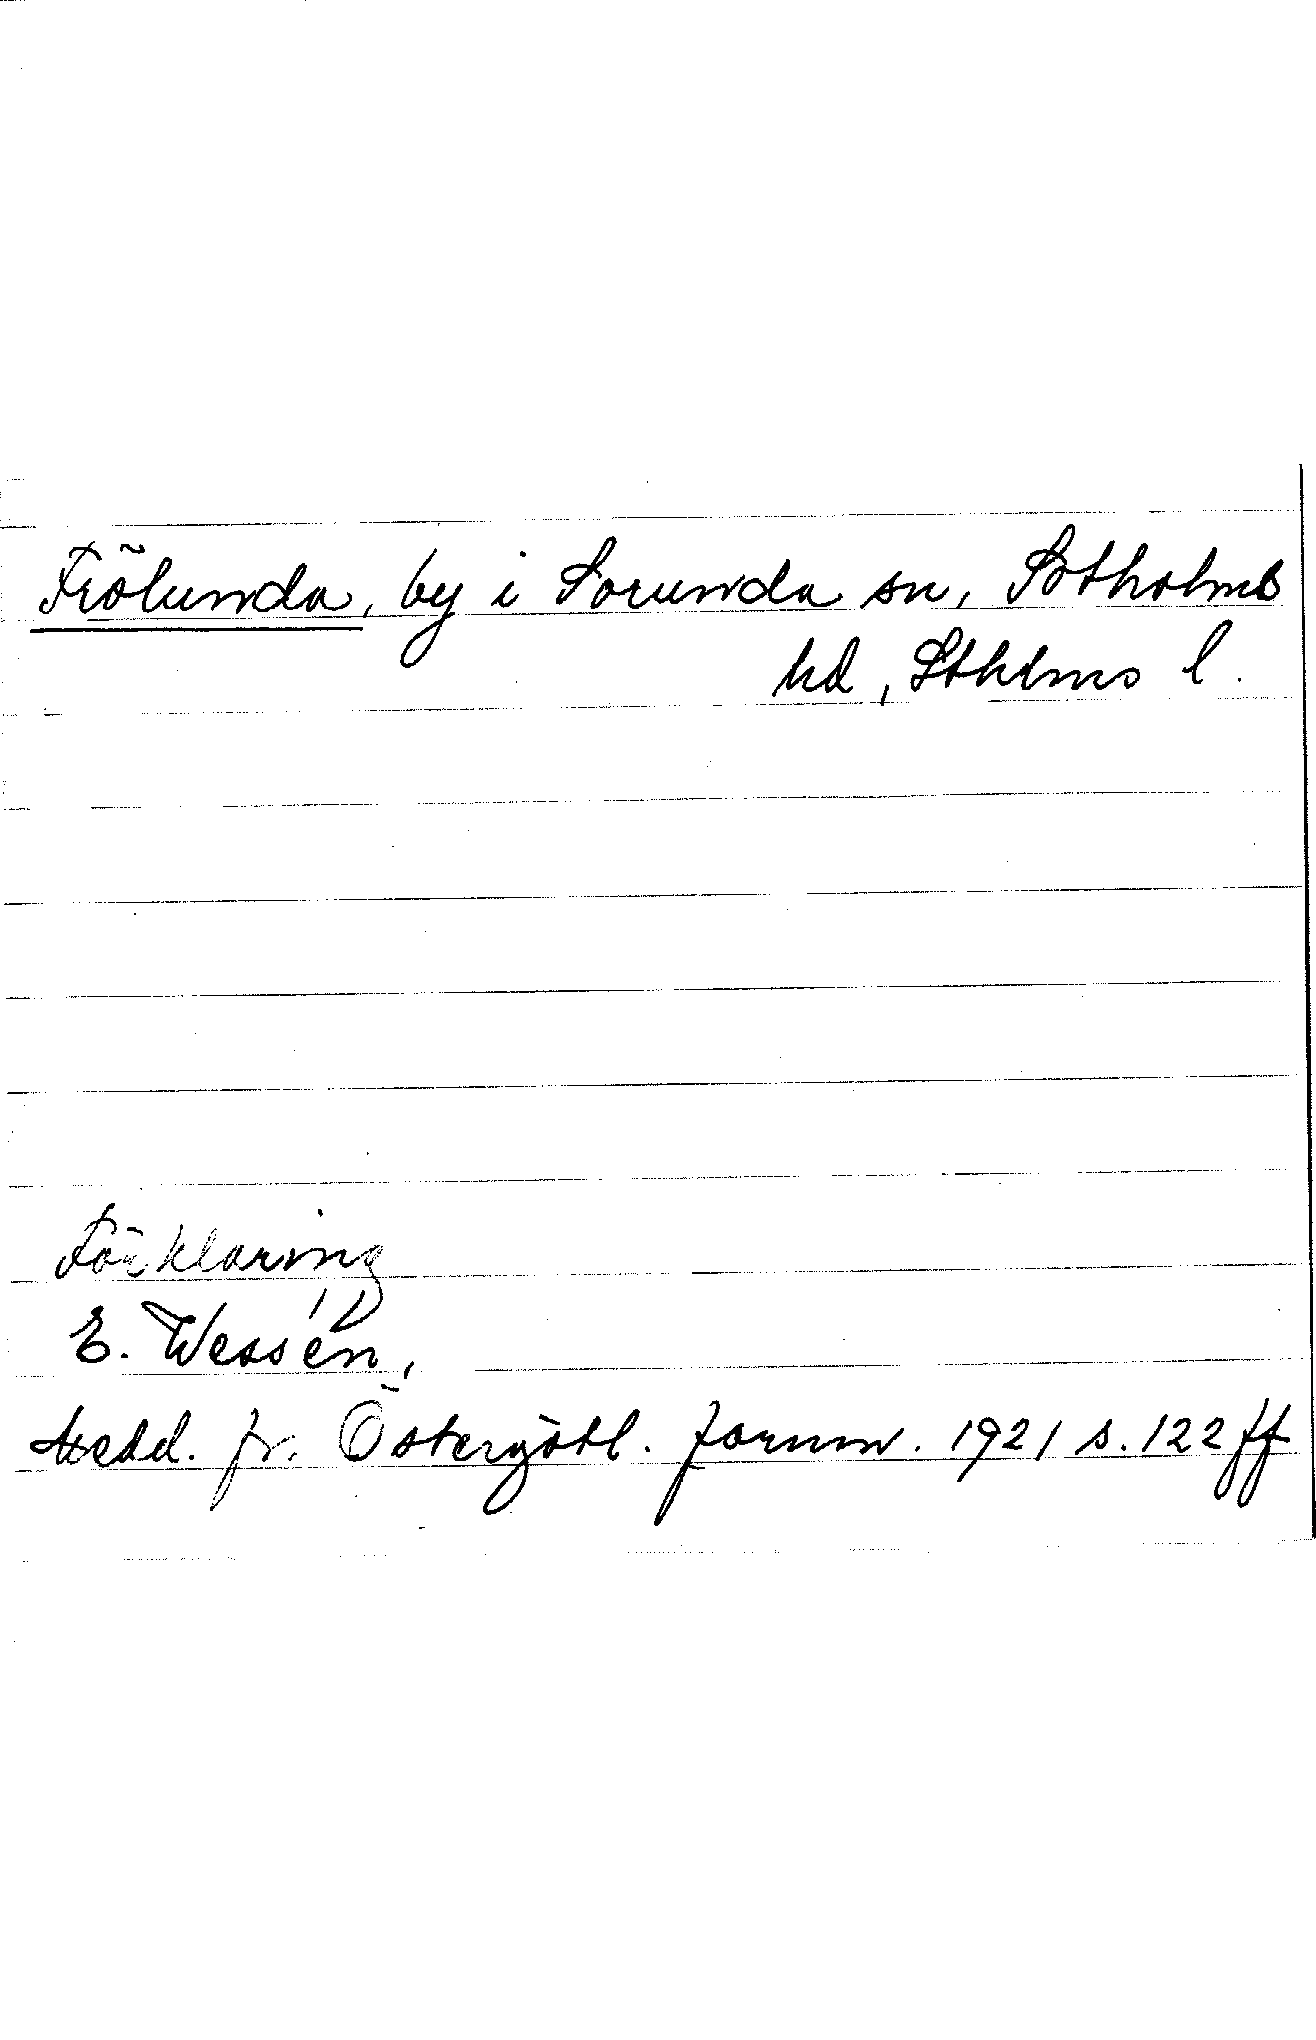 Frölunda, by i Sorunda sn, Sotholms
hd, Sthlms l.
Förklaring
E. Wessén,
Medd. fr. Östergötl. fornm. 1921 s. 122 ff